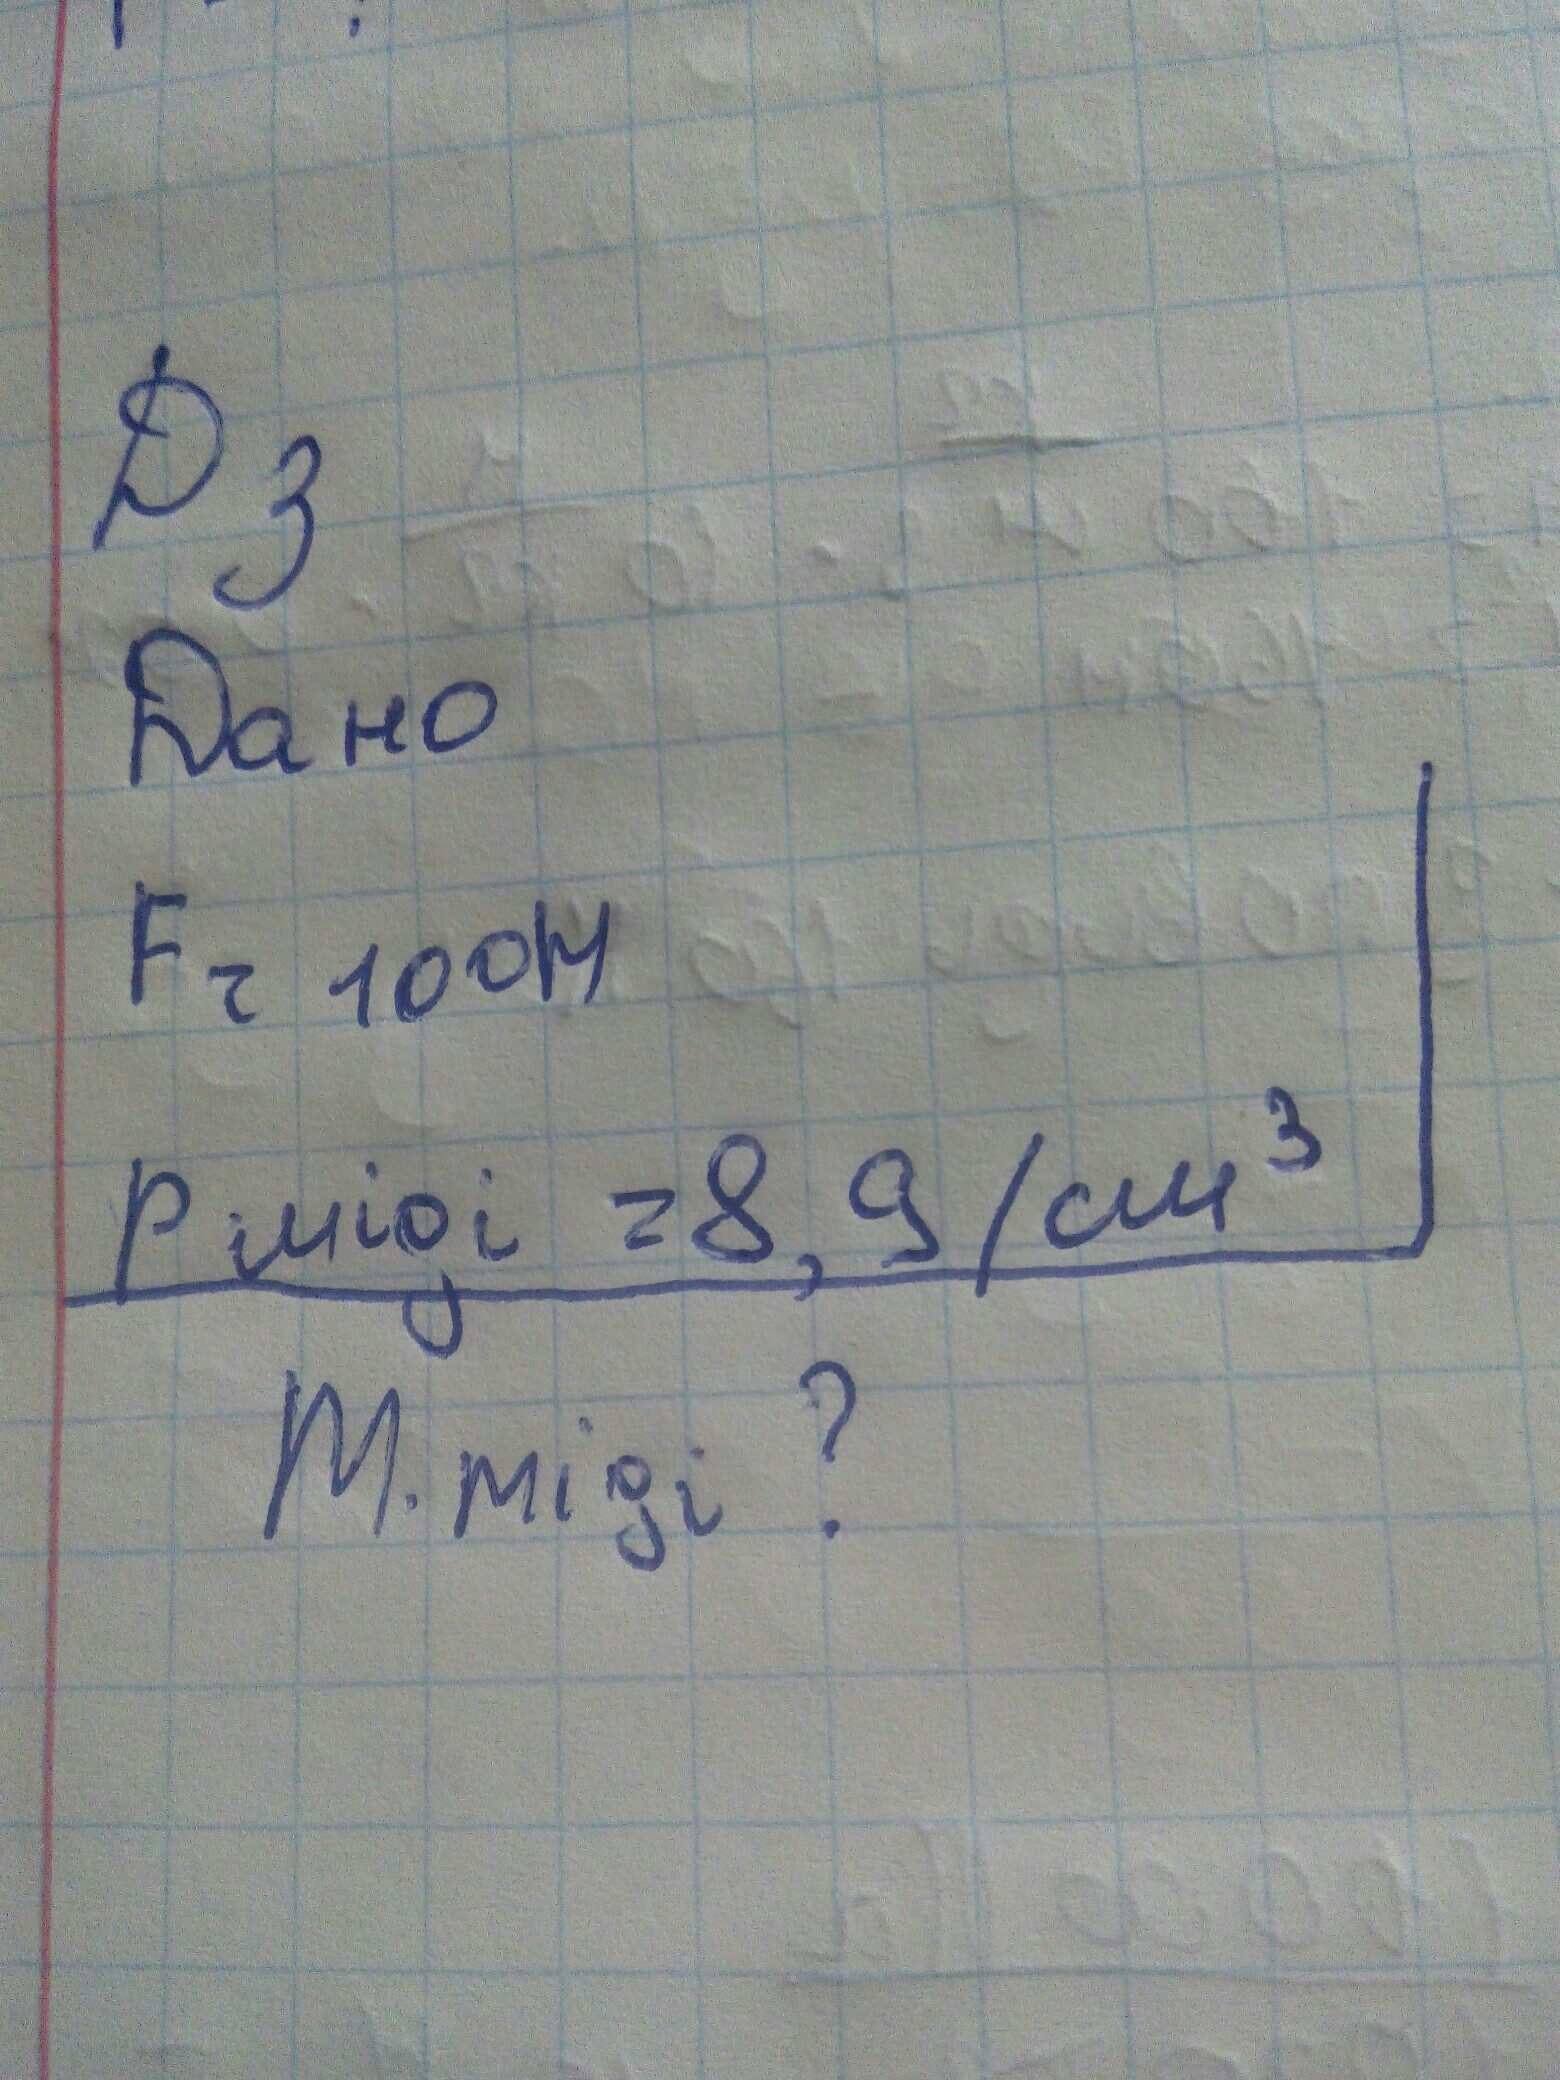 ДЗ
Дано
F = 100Н
p міді = 8,9/см³
М. міді ?